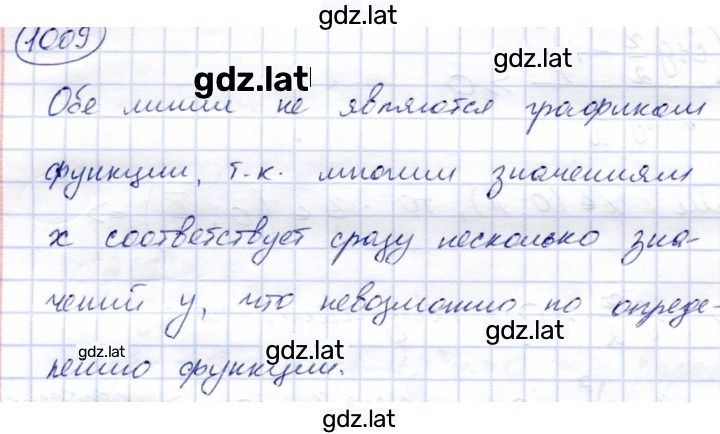 gdz.lat
1009
gdz.lat
Обе линии не являются графиком
функции, т.к. многим значениям
x соответствует сразу несколько зна-
чений y, что невозможно по опреде-
gdz.lat
gdz.lat
лению функции.
gdz.lat